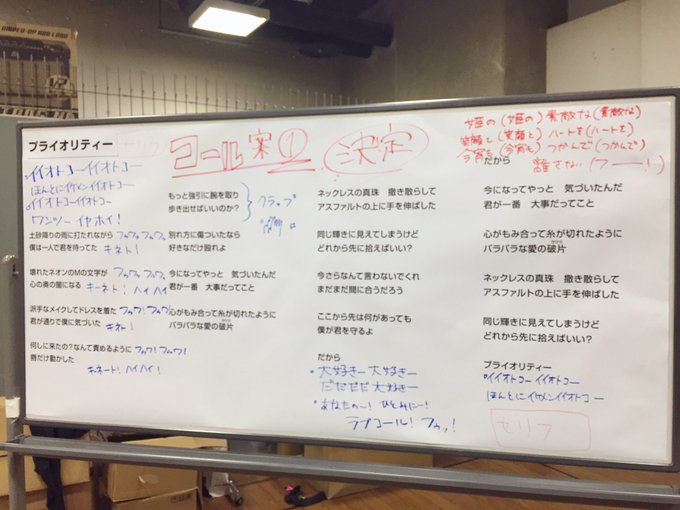 プライオリティー
セリフ
コール案① 決定
姫の(姫の)素敵な(素敵な)
笑顔と(笑顔と)ハートを(ハートを)
今宵も(今宵も)つかんで(つかんで)
離さない(フーー!)
イイオトコーイイオトコー
ほんとにイケメンイイオトコー
イイオトコーイイオトコー
ワンツー イヤホイ!
土砂降りの雨に打たれながら フゥワ フゥワ
僕は一人で君を待ってた キネト!
壊れたネオンのMの文字が フゥワ フゥワ
心の奥の闇になる キーネト! ハイ ハイ
派手なメイクしてドレスを着た フゥワ! フゥワ!
君が通りで僕に気づいた キネト!
何しに来たの?なんて責めるように フゥワ! フゥワ!
唇だけ動かした
キネート! ハイ ハイ!
もっと強引に腕を取り
歩き出せばいいのか?
クラップ
別れ方に傷ついたなら
好きなだけ殴れよ
今になってやっと 気づいたんだ
君が一番 大事だってこと
心がもみ合って糸が切れたように
バラバラな愛の破片
かけら
ネックレスの真珠 撒き散らして
アスファルトの上に手を伸ばした
同じ輝きに見えてしまうけど
どれから先に拾えばいい?
今さらなんて言わないでくれ
まだまだ間に合うだろう
ここから先は何があっても
僕が君を守るよ
だから
・大好きー 大好きー
だだだだ 大好きー
・あなたの〜! ひとみにー!
ラブコール! フゥッ!
だから
今になってやっと 気づいたんだ
君が一番 大事だってこと
心がもみ合って糸が切れたように
バラバラな愛の破片
かけら
ネックレスの真珠 撒き散らして
アスファルトの上に手を伸ばした
同じ輝きに見えてしまうけど
どれから先に拾えばいい?
プライオリティー
イイオトコー イイオトコー
ほんとにイケメンイイオトコー
セリフ